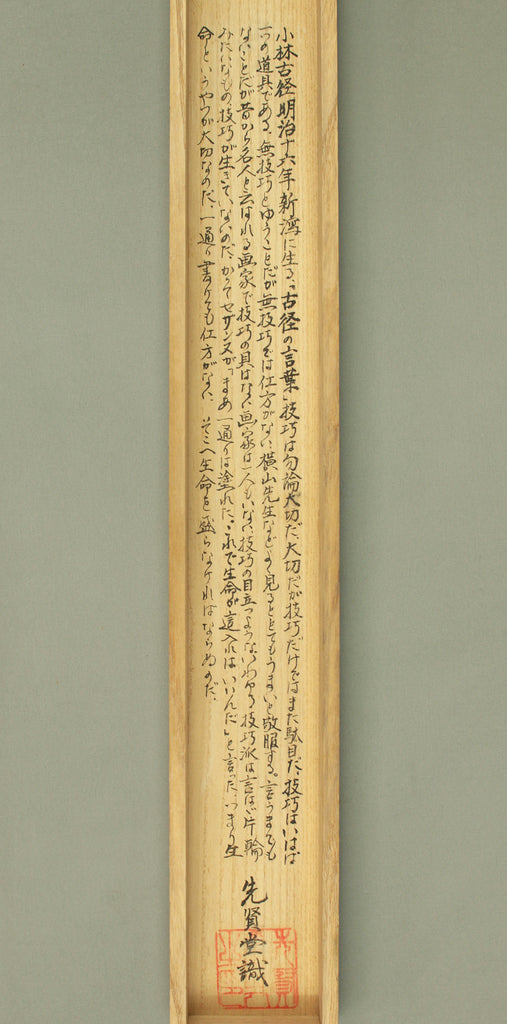 小林古径明治十六年新潟に生る。「古径の言葉」技巧は勿論大切だ、大切だが技巧だけではまた駄目だ、技巧はいはば
一つの道具である。無技巧とゆうことだが無技巧では仕方がない、横山先生などよく見るととてもうまいと敬服する。言うまでも
ないことだが昔から名人と云はれる画家で技巧の具はない画家は一人もいない、技巧の目立つようないわゆる技巧派は言はば片輪
みたいなもの、技巧が生きていないのだ、かつてセザンヌが「まあ一通りは塗れた、これで生命が這入ればいいんだ」と言った、つまり生
命というやつが大切なのだ、一通り書けても仕方がない、そこへ生命を盛らなければならぬのだ。
先賢堂識